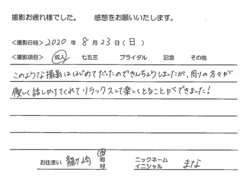 撮影お疲れ様でした。　感想をお願いいたします。
<撮影日時> 2020年 8月 23日 (日)
<撮影項目> 成人 七五三 ブライダル 記念 その他
このような撮影ははじめてだったのできんちょうしましたが、周りの方々が
優しく話しかけてくれてリラックスして楽しくとることができました!
お住まい 龍ヶ崎 市 町 村 ニックネーム イニシャル まな